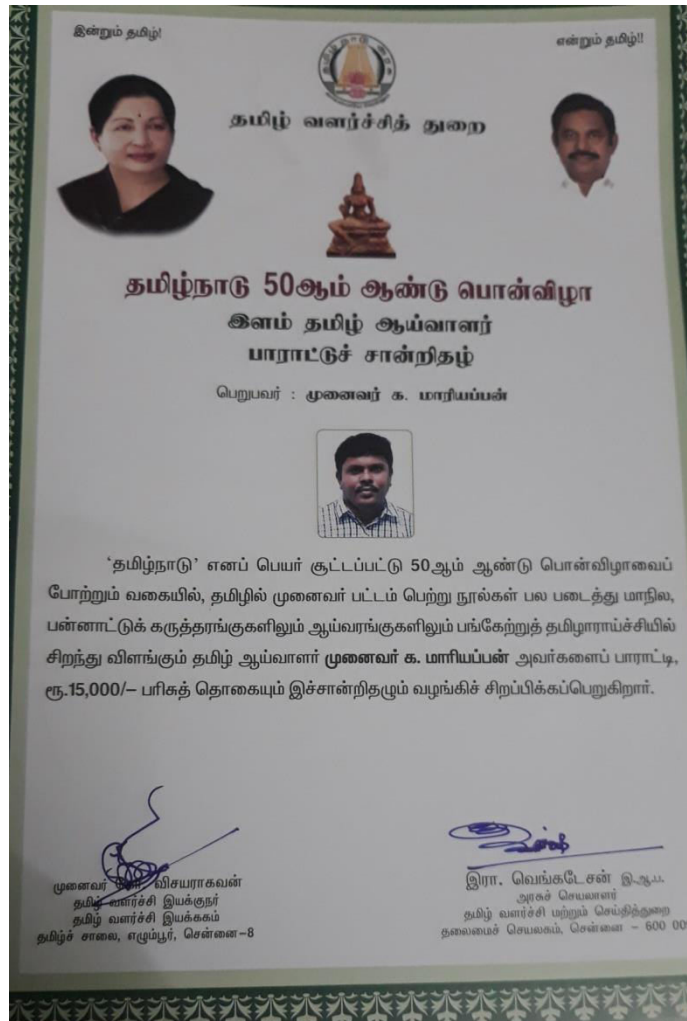 இன்றும் தமிழ்!
என்றும் தமிழ்!!
தமிழ் வளர்ச்சித் துறை
தமிழ்நாடு 50ஆம் ஆண்டு பொன்விழா
இளம் தமிழ் ஆய்வாளர்
பாராட்டுச் சான்றிதழ்
பெறுபவர் : முனைவர் க. மாரியப்பன்
‘தமிழ்நாடு’ எனப் பெயர் சூட்டப்பட்டு 50ஆம் ஆண்டு பொன்விழாவைப்
போற்றும் வகையில், தமிழில் முனைவர் பட்டம் பெற்று நூல்கள் பல படைத்து மாநில,
பன்னாட்டுக் கருத்தரங்குகளிலும் ஆய்வரங்குகளிலும் பங்கேற்றுத் தமிழாராய்ச்சியில்
சிறந்து விளங்கும் தமிழ் ஆய்வாளர் முனைவர் க. மாரியப்பன் அவர்களைப் பாராட்டி,
ரூ.15,000/– பரிசுத் தொகையும் இச்சான்றிதழும் வழங்கிச் சிறப்பிக்கப்பெறுகிறார்.
முனைவர் விசயராகவன்
தமிழ் வளர்ச்சி இயக்குநர்
தமிழ் வளர்ச்சி இயக்ககம்
தமிழ்ச் சாலை, எழும்பூர், சென்னை–8
இரா. வெங்கடேசன் இ.ஆ.ப.
அரசுச் செயலாளர்
தமிழ் வளர்ச்சி மற்றும் செய்தித்துறை
தலைமைச் செயலகம், சென்னை – 600 009